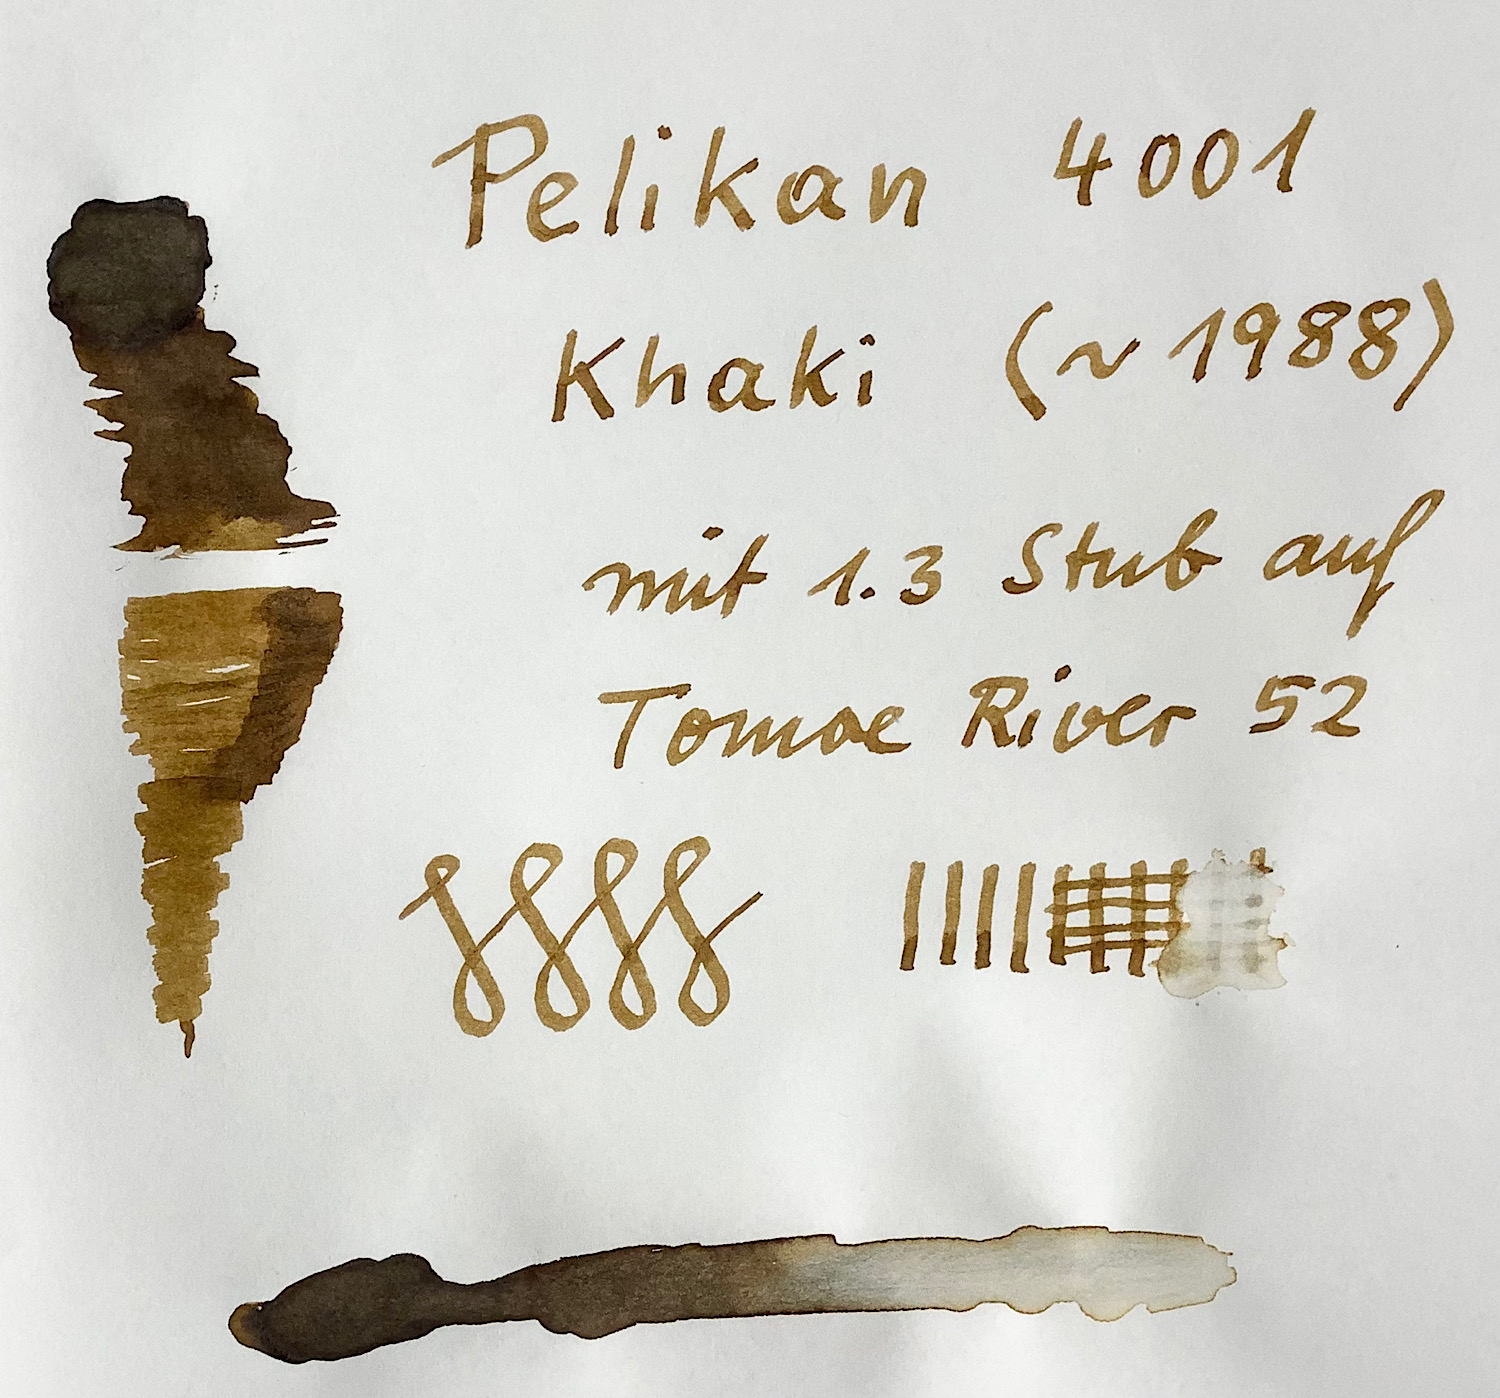 Pelikan 4001
Khaki (~ 1988)
mit 1.3 Stub auf
Tomoe River 52